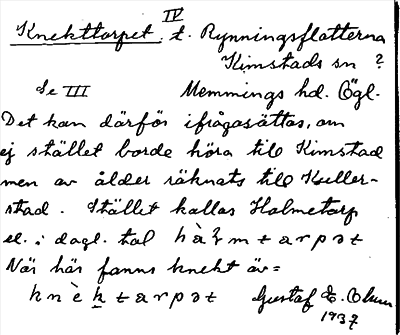 IV
Knekttorpet t. Rynningsflotterna
Kimstads sn ?
Se III Memmings hd. Ögl.
Det kan därför ifrågasättas, om
ej stället borde höra till Kimstad
men av ålder räknats till Kuller-
stad. Stället kallas Holmetorp
el. i dagl. tal hàɫmtarpət
När här fanns knekt äv=
knèktarpət Gustaf E. Olsson
1937